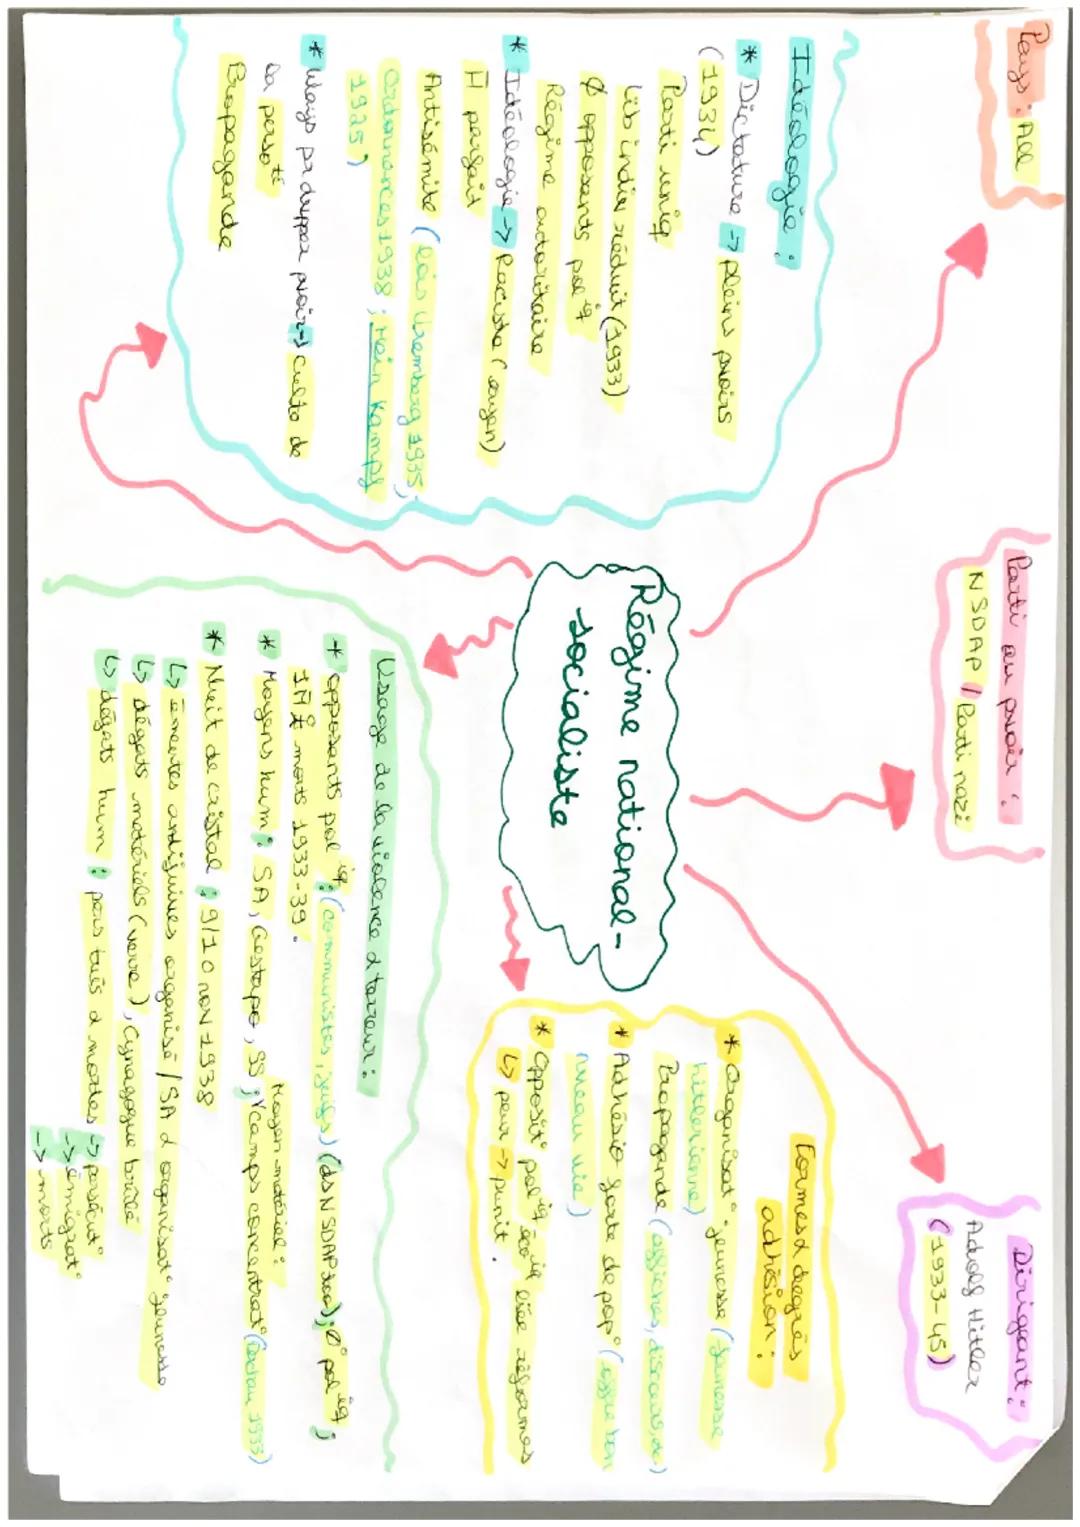 Pays : All
Parti au pvoir :
NSDAP / Parti nazi
Dirigeant :
Adolf Hitler
(1933-45)
Régime national-
socialiste
Idéologie :
* Dictature → pleins pvoirs
(1934)
Parti uniq
Lib indiv réduit (1933)
Ø opposants pol^iq
Régime autoritaire
* Idéologie → Raciste (aryen)
H parfait
Antisémite (lois Nuremberg 1935,
Ordonnances 1938 ; Mein Kampf
1925)
* Moys pr dvpper pvoir → Culte de
la perso^té
Propagande
Formes d degrés
adhésion :
* Organisat° jeunesse (Jeunesse
hitlérienne)
Propagande (affiches, discours,
* Adhésio forte de pop° (offre bon
niveau vie)
* Opposit° pol^iq éco^iq liée réformes
↳ peur → punit.
Usage de la violence d terreur :
* opposants pol^iq : (communistes, juifs) (ds NSDAP ; Ø° pol^iq ;
1M morts 1933-39.
Moyen-matériel :
* Moyens hum : SA, Gestapo, SS ; camps concentrat° (Dachau 1933)
* Nuit de cristal : 9/10 nov 1938
↳ émeutes antijuives organisé / SA d organisat° jeunesse
↳ dégats matériels (verre), Cynagogue brûlé
↳ dégats hum : pers tués d mortes → persécut°
→ émigrat°
→ morts